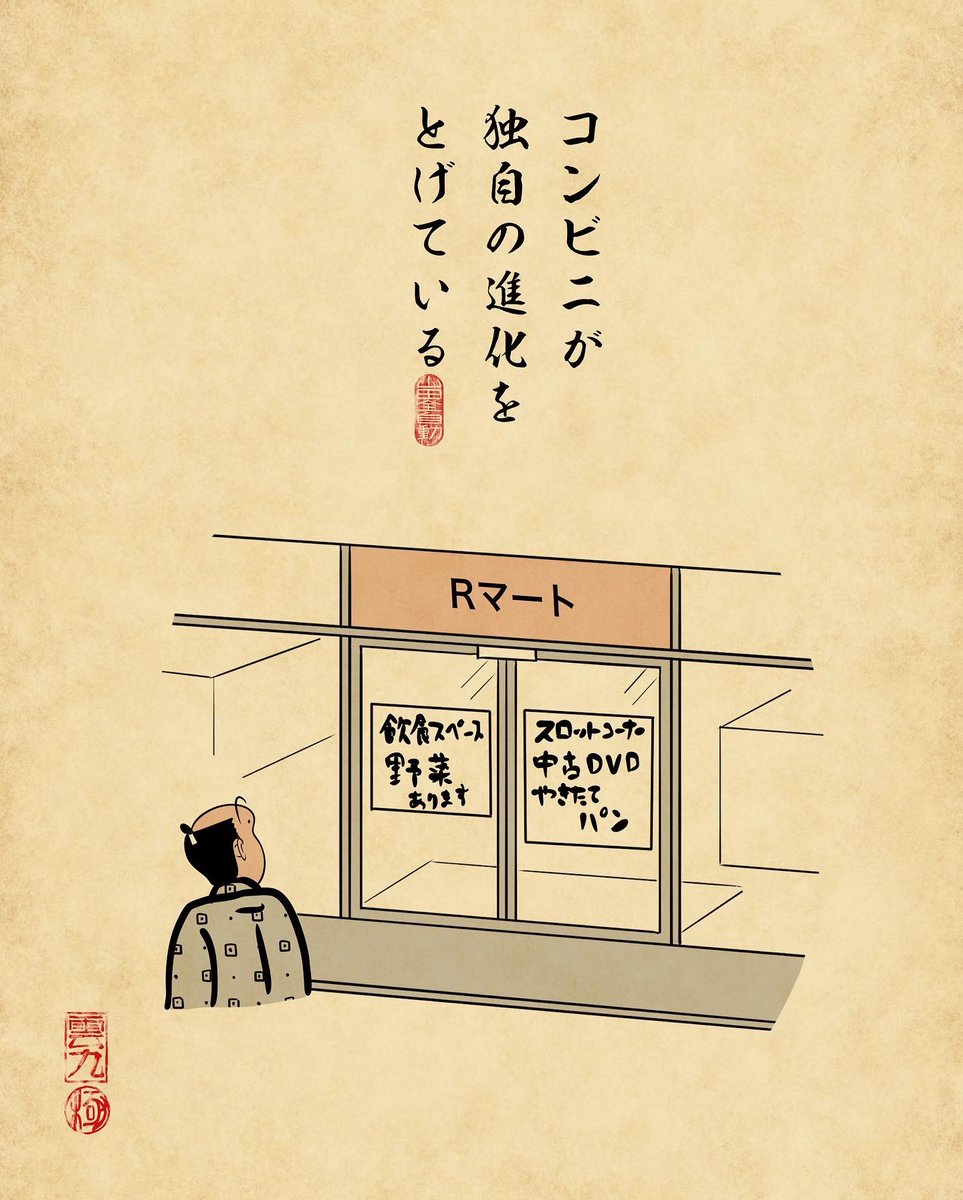 コンビニが
独自の進化を
とげている
Rマート
飲食スペース
野菜
あります
スロットコーナー
中古DVD
やきたて
パン
雲九